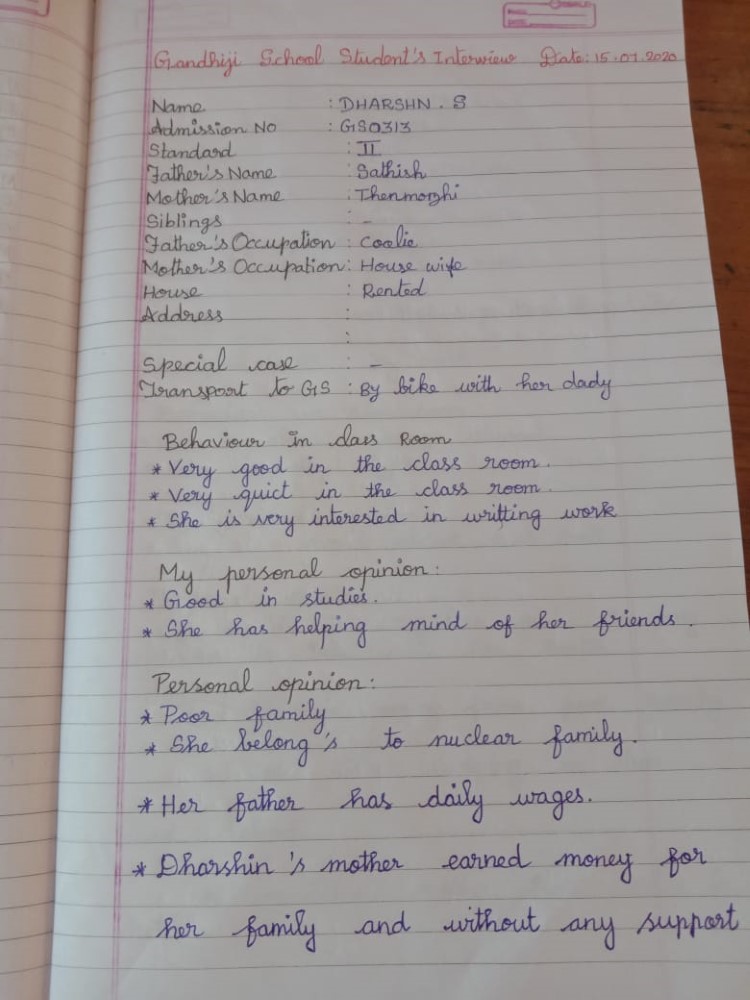 Gandhiji School Student's Interview Date: 15.07.2020
Name : DHARSHN . S
Admission No : GIS0313
Standard : II
Father's Name : Sathish
Mother's Name : Thenmozhi
Siblings : -
Father's Occupation : Coolie
Mother's Occupation : House wife
House : Rented
Address :
:
Special case : -
Transport to GIS : By bike with her dady
Behaviour in class Room
* Very good in the class room.
* Very quict in the class room.
* She is very interested in writting work
My personal opinion :
* Good in studies.
* She has helping mind of her friends .
Personal opinion :
* Poor family
* She belong's to nuclear family.
* Her father has daily wages.
* Dharshin 's mother earned money for
her family and without any support